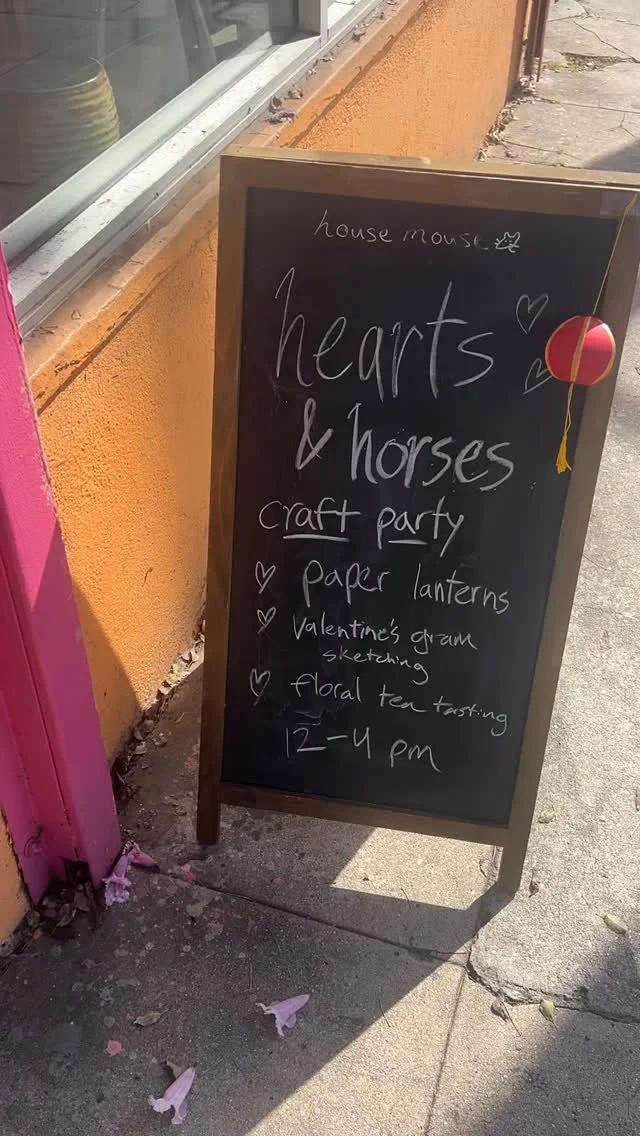 house mouse
hearts
& horses
craft party
paper lanterns
Valentine's gram
sketching
floral tea tasting
12-4 pm